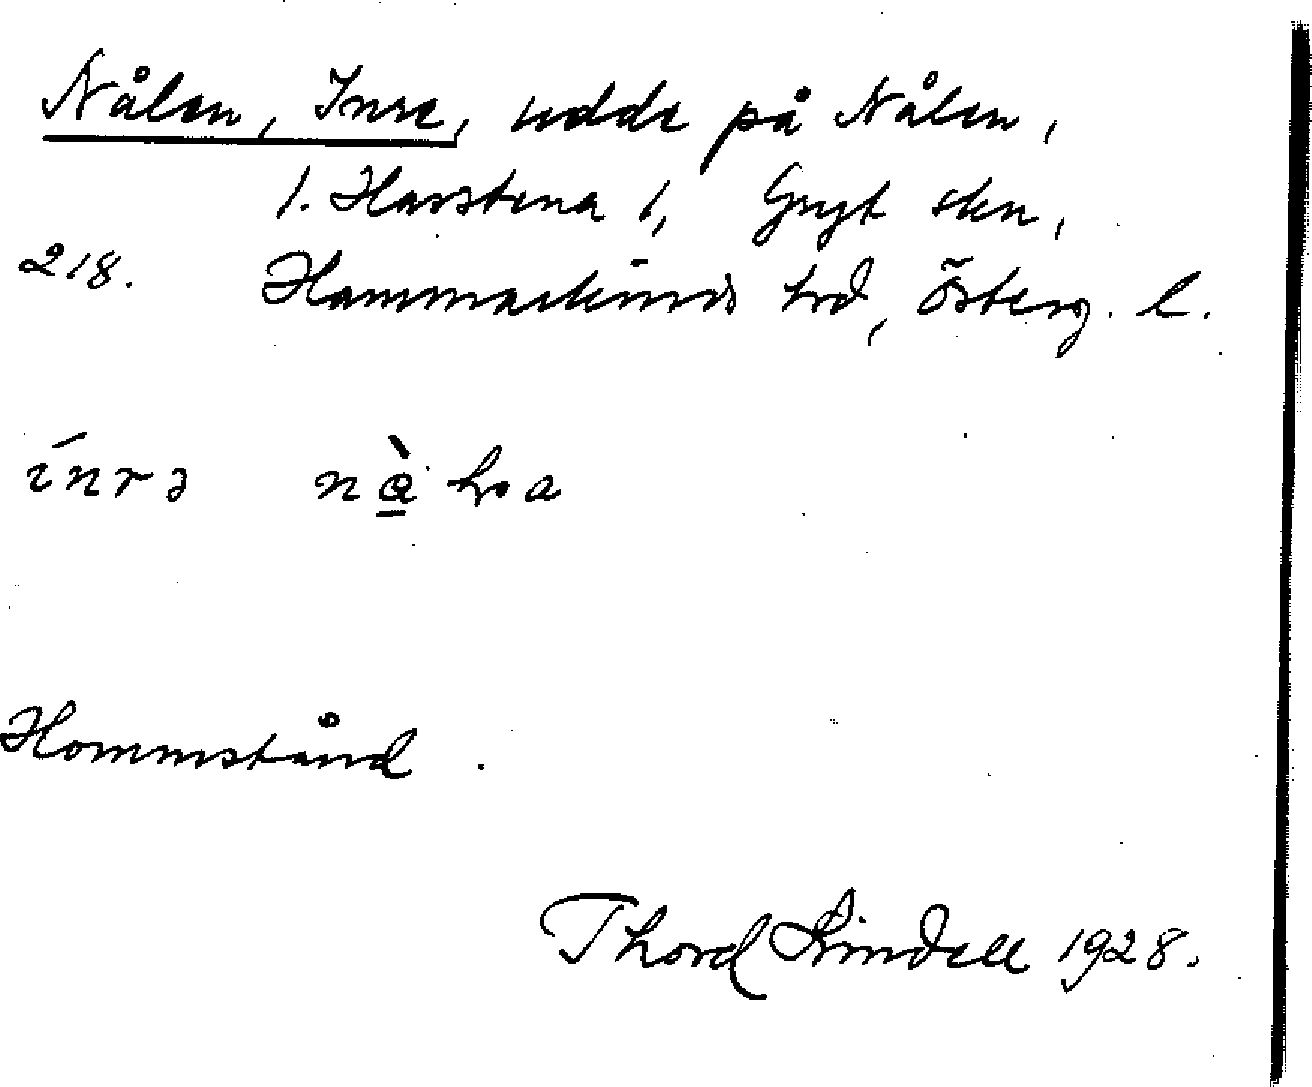 Nålen, Inre, udde på Nålen,
1. Harstena 1, Gryt skn,
218. Hammarkinds hrd, Österg. l.
ínrə
Hommstånd.
Thord Lindell 1928.